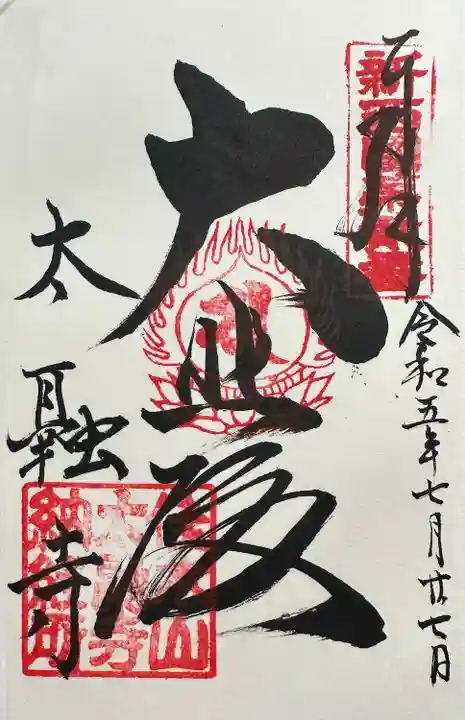 奉拝
令和五年七月廿七日
大悲殿
太融寺
佳木山
太融寺
納経所